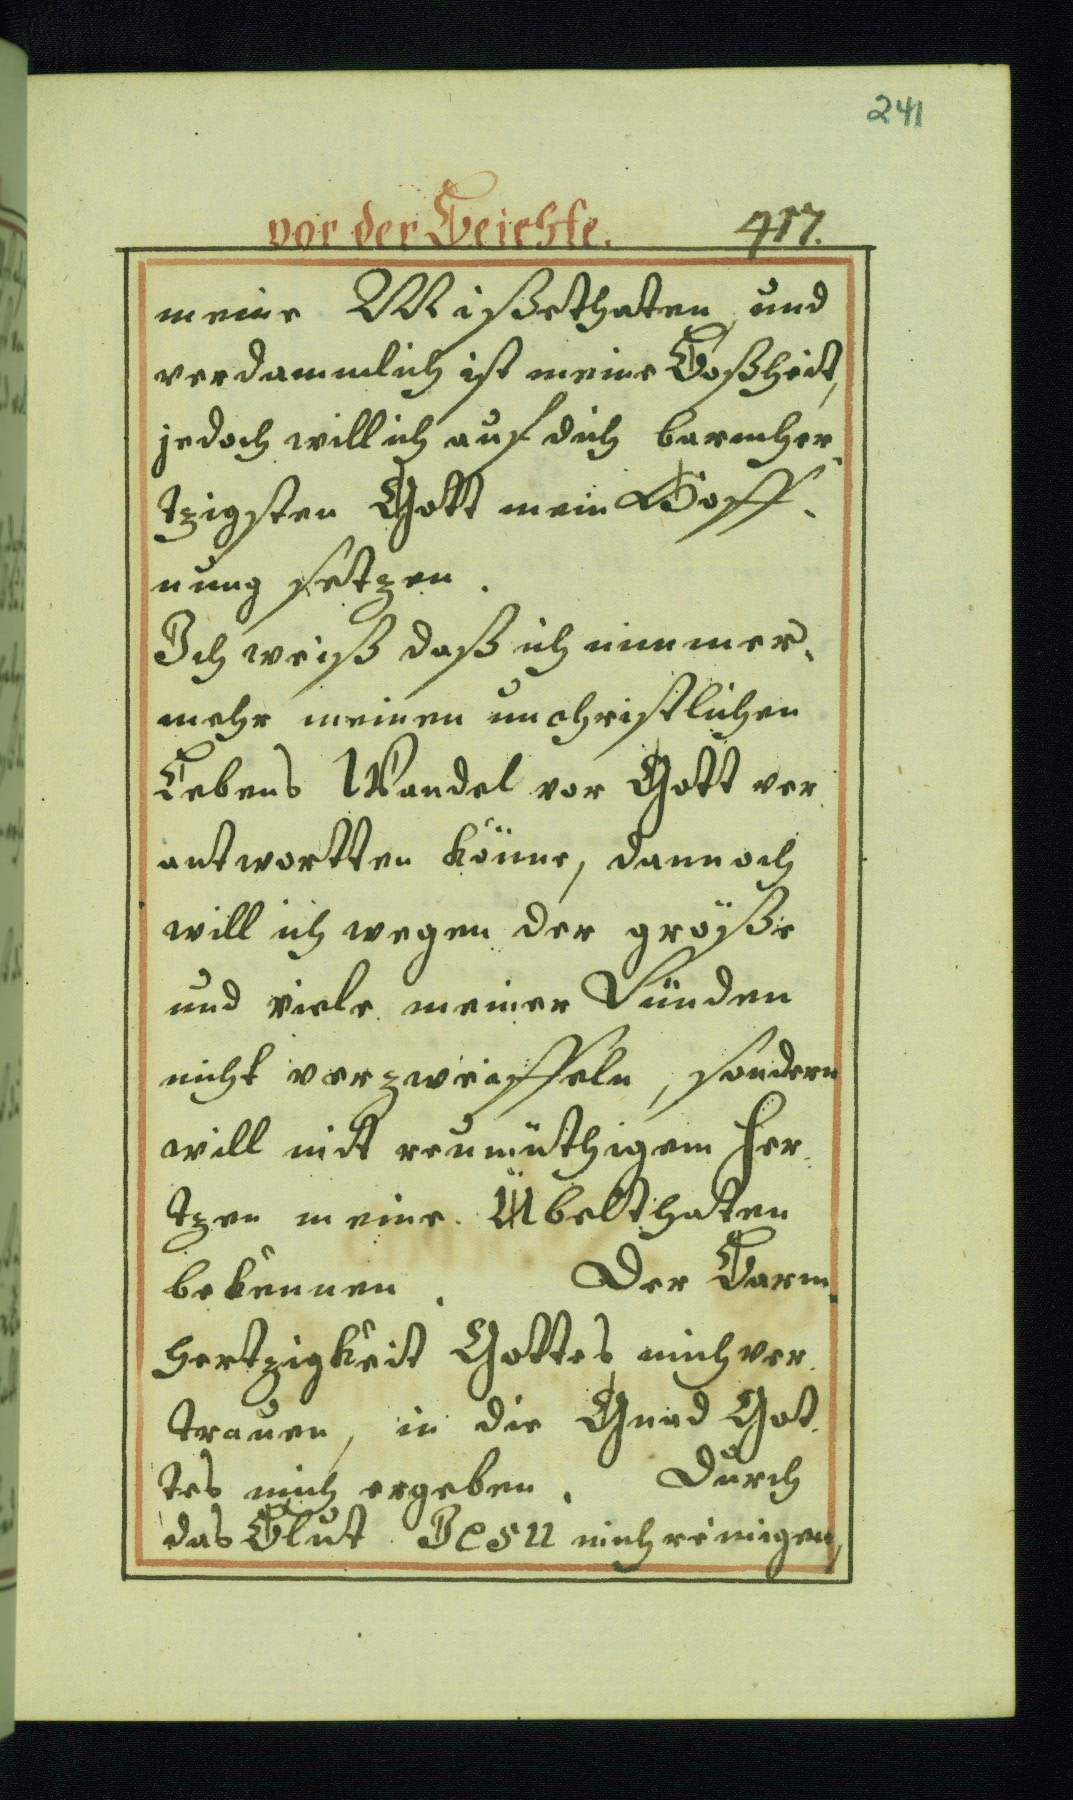 241
vor der Beichte. 417.
meine Mißethaten, und
verdammlich ist meine Boßheit,
jedoch will ich auf dich barmher¬
tzigsten Gott mein Hoff¬
nung setzen.
Ich weiß daß ich nimmer¬
mehr meinen unchristlichen
Lebens Wandel vor Gott ver
antwortten könne, dannoch
will ich wegen der größe
und viele meiner Sünden
nicht verzweiffeln, sondern
will mit reumüthigem Her¬
tzen meine Übelthaten
bekennen. Der Barm¬
hertzigkeit Gottes mich ver¬
trauen, in die Gnad Got¬
tes mich ergeben. Durch
das Blut Jesu mich reinigen,